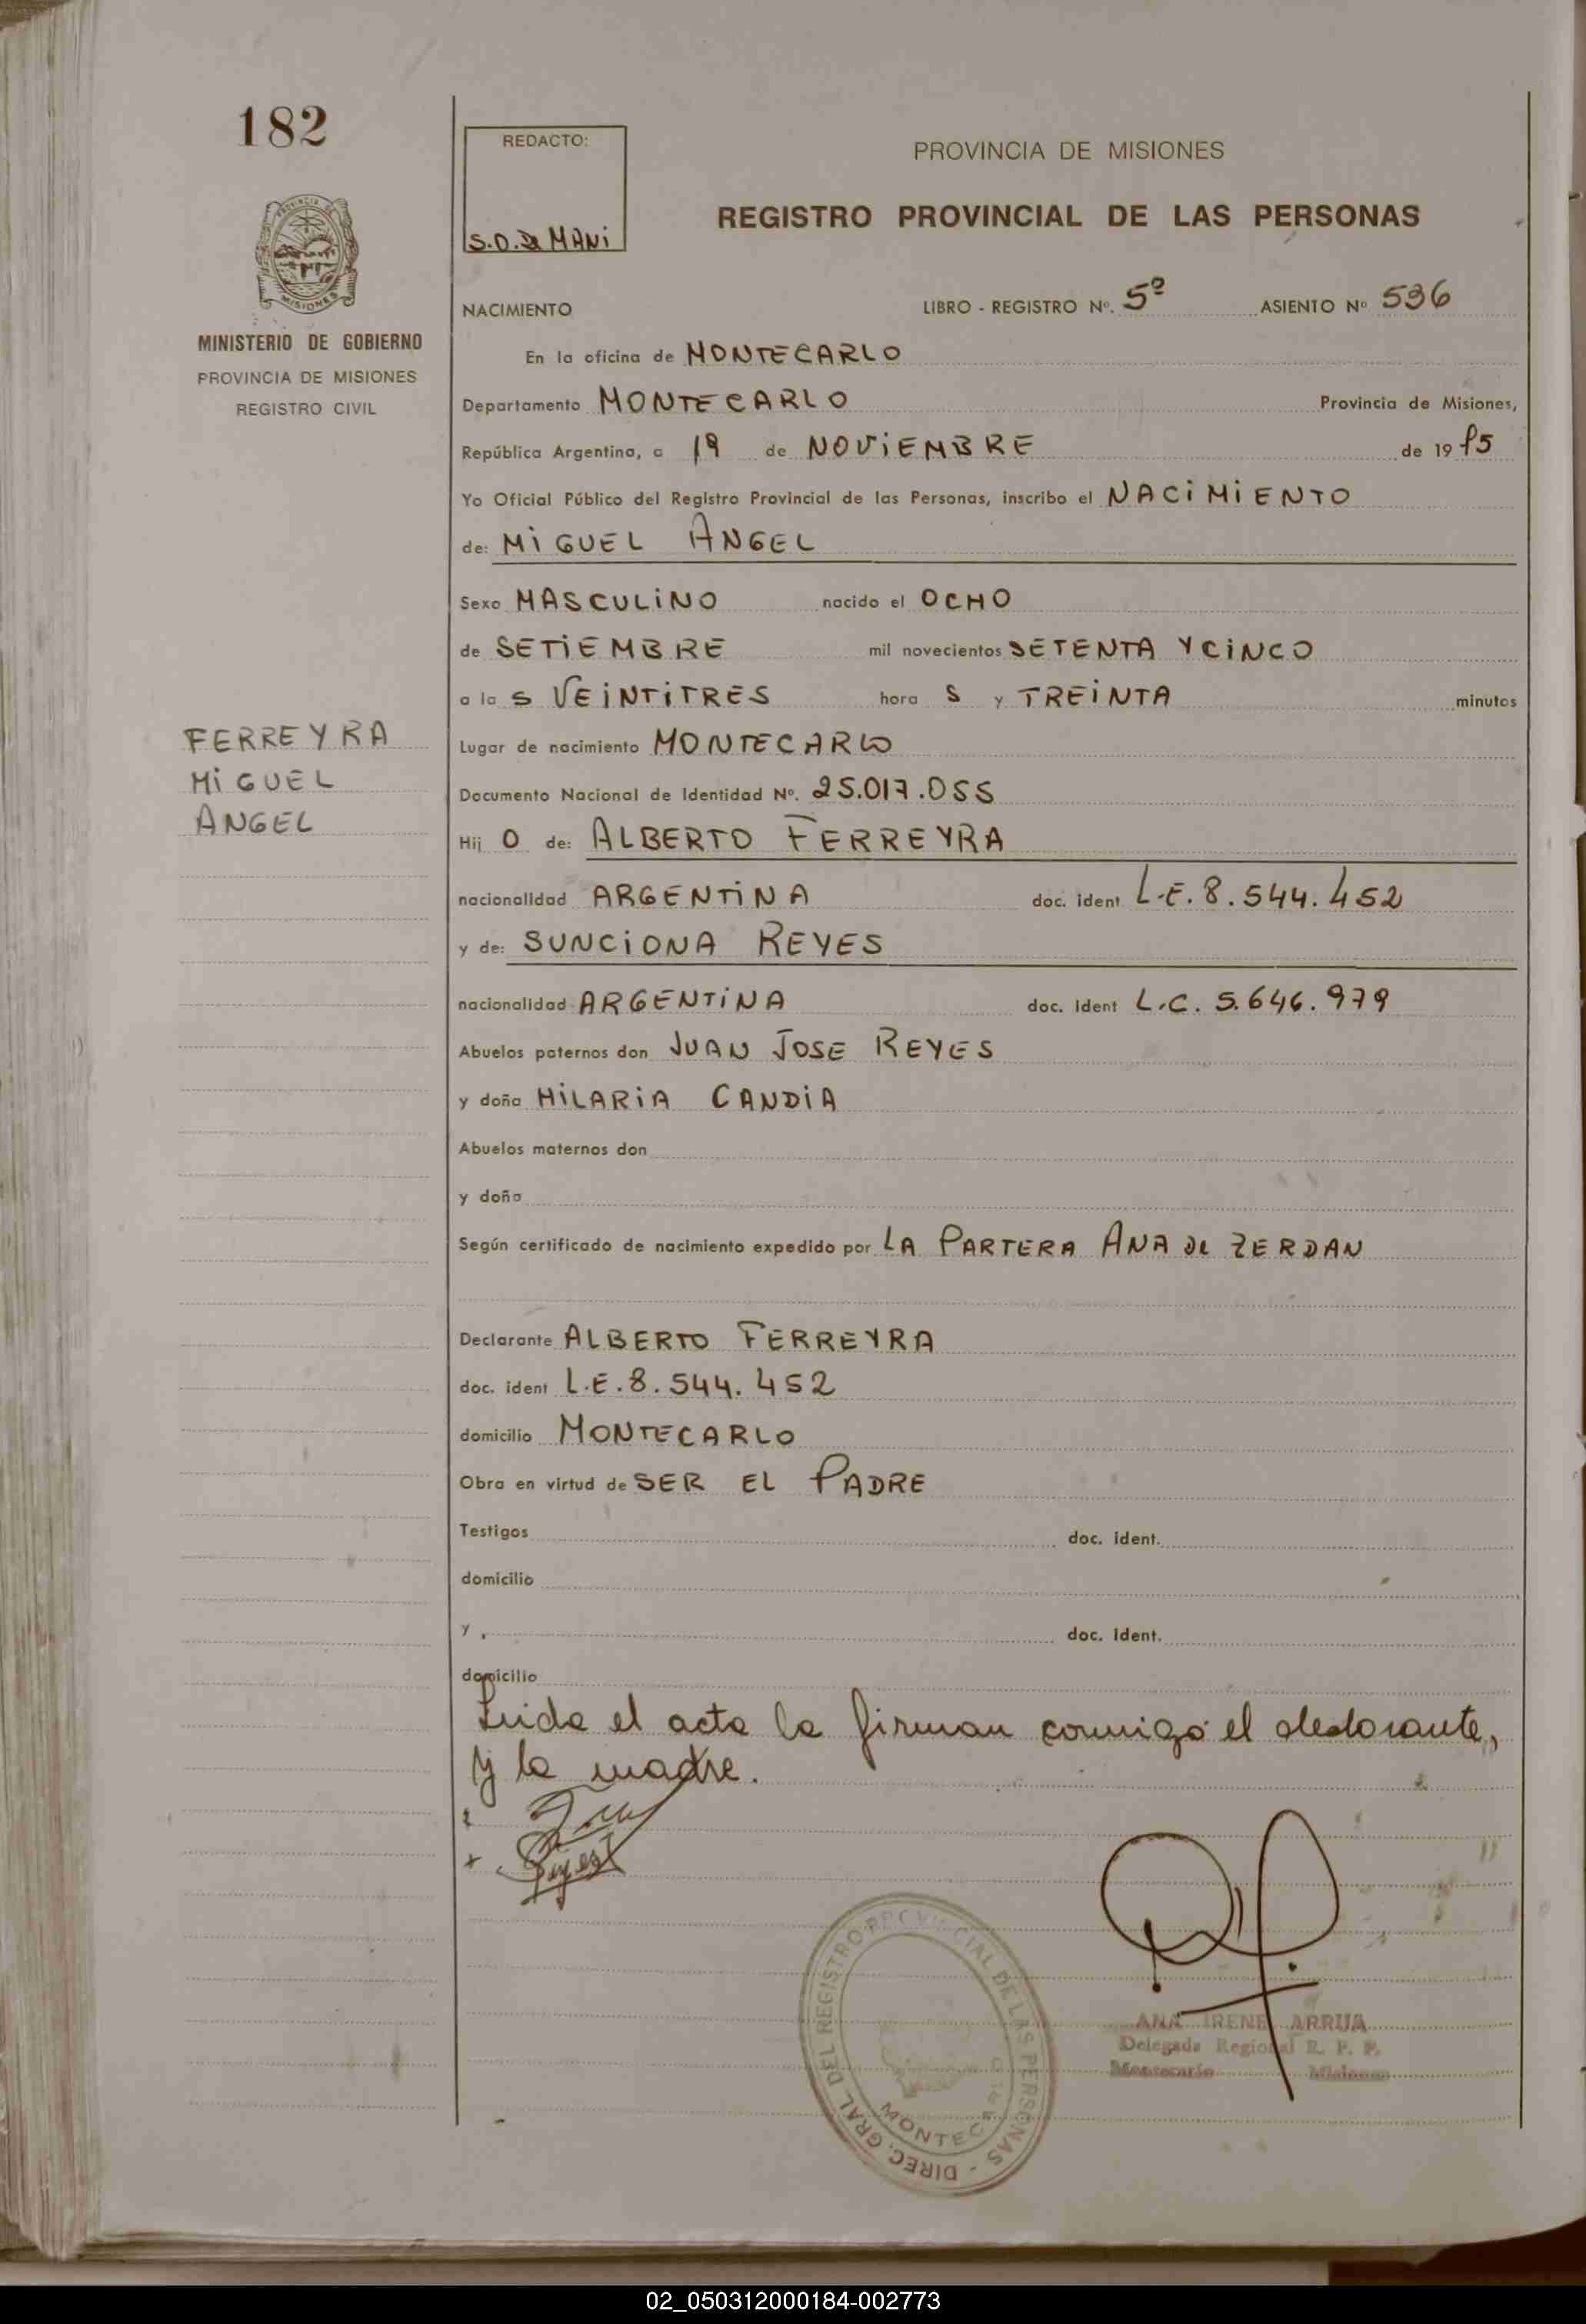 182
REDACTO:
S.O. De MANi
PROVINCIA DE MISIONES
REGISTRO PROVINCIAL DE LAS PERSONAS
PROVINCIA DE MISIONES
MINISTERIO DE GOBIERNO
PROVINCIA DE MISIONES
REGISTRO CIVIL
NACIMIENTO LIBRO - REGISTRO Nº. 5º ASIENTO Nº 536
En la oficina de MONTECARLO
Departamento MONTECARLO Provincia de Misiones,
República Argentina, a 19 de NOViEMBRE de 1975
Yo Oficial Público del Registro Provincial de las Personas, inscribo el NACiMiENTO
de: MiGUEL ANGEL
Sexo MASCULiNO nacido el OCHO
de SETiEMBRE mil novecientos SETENTA Y CiNCO
a la s VEiNTiTRES hora S y TREiNTA minutos
FERREYRA
MiGUEL
ANGEL
Lugar de nacimiento MONTECARLO
Documento Nacional de Identidad Nº. 25.017.055
Hij O de: ALBERTO FERREYRA
nacionalidad ARGENTiNA doc. ident L.E. 8.544.452
y de: SUNCiONA REYES
nacionalidad ARGENTiNA doc. ident L.C. 5.646.979
Abuelos paternos don JUAN JOSE REYES
y doña HiLARiA CANDiA
Abuelos maternos don
y doña
Según certificado de nacimiento expedido por LA PARTERA ANA DE ZERDAN
Declarante ALBERTO FERREYRA
doc. ident L.E. 8.544.452
domicilio MONTECARLO
Obra en virtud de SER EL PADRE
Testigos doc. ident.
domicilio
y doc. ident.
domicilio
Leida el acta la firman conmigo el declarante,
y la madre.
DIREC. GRAL DEL REGISTRO PROVINCIAL DE LAS PERSONAS -
MONTECARLO
ANA IRENE ARRUA
Delegada Regional R. P. P.
Montecarlo Misiones
02_050312000184-002773